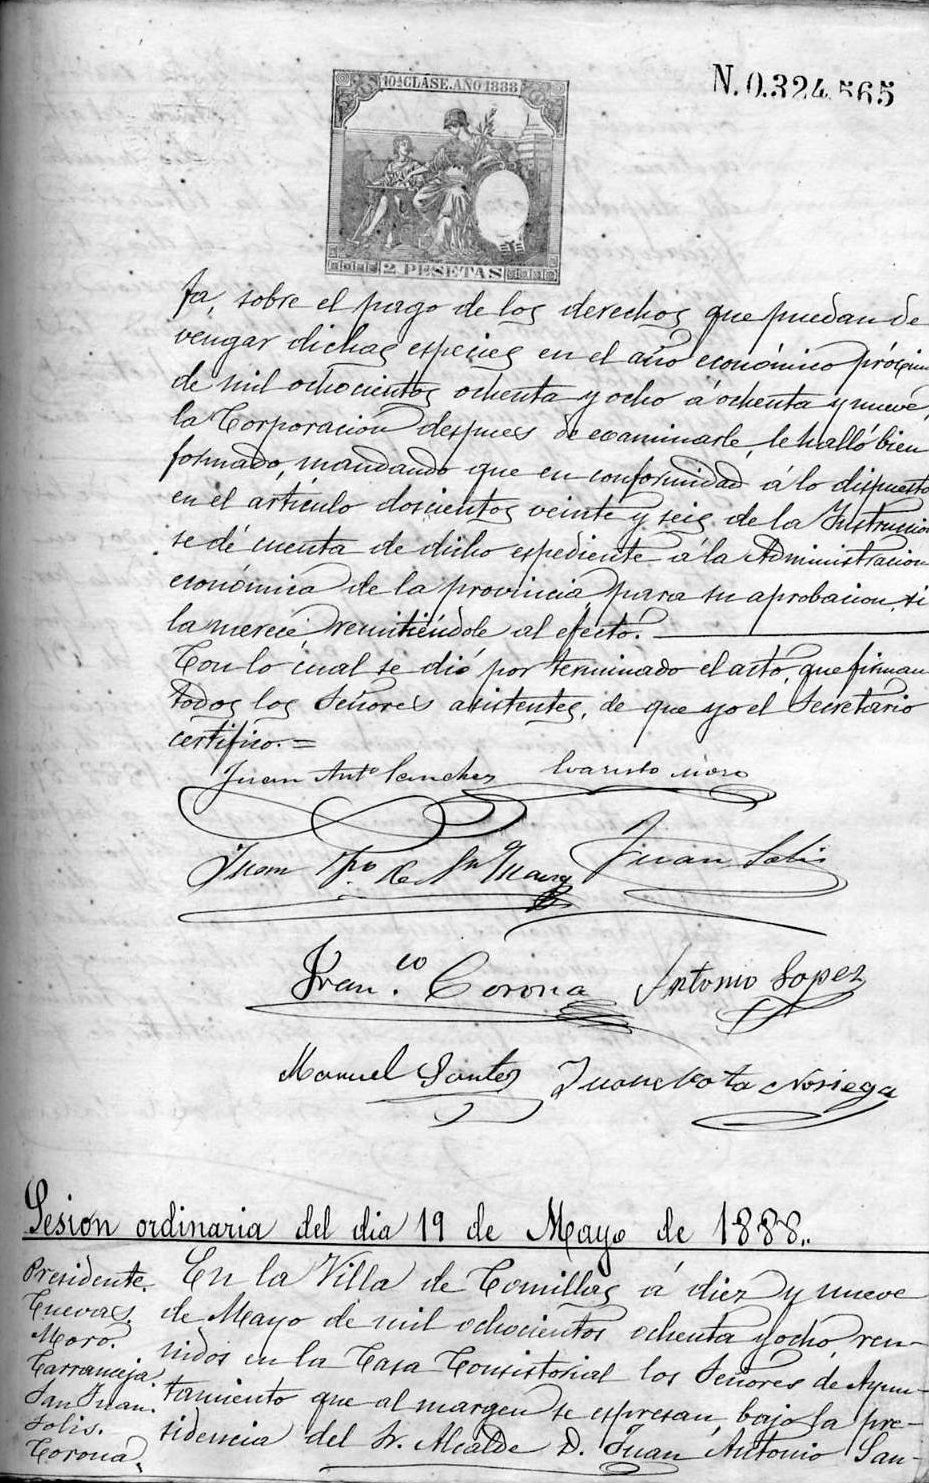 N. 0.324.565
10ª CLASE. AÑO 1888
2 PESETAS
ta, sobre el pago de los derechos que puedan de
vengar dichas especies en el año económico próximo
de mil ochocientos ochenta y ocho á ochenta y nueve,
la Corporacion despues de ecsaminarle, le halló bien
formado, mandando que en conformidad á lo dispuesto
en el artículo doscientos veinte y seis de la Instruccion
se dé cuenta de dicho espediente á la Administracion
económica de la provincia para su aprobacion, si
la merece remitiéndole al efecto.
Con lo cual se dió por terminado el acto, que firman
todos los Señores asistentes, de que yo el Secretario
certifico. =
Juan Antº Sanchez Evaristo Moro
Juan Solis
Juan
Franco. Corona Antonio Lopez
Manuel Santos Juan Bta Noriega
Sesión ordinaria del dia 19 de Mayo de 1888.
Presidente.
Cuevas.
Moro.
Carranceja.
San Juan.
Solis.
Corona.
En la Villa de Comillas á diez y nueve
de Mayo de mil ochocientos ochenta y ocho, reu-
nidos en la Casa Consistorial los Señores de Ayun-
tamiento que al margen se espresan, bajo la pre-
sidencia del Sr. Alcalde D. Juan Antonio San-